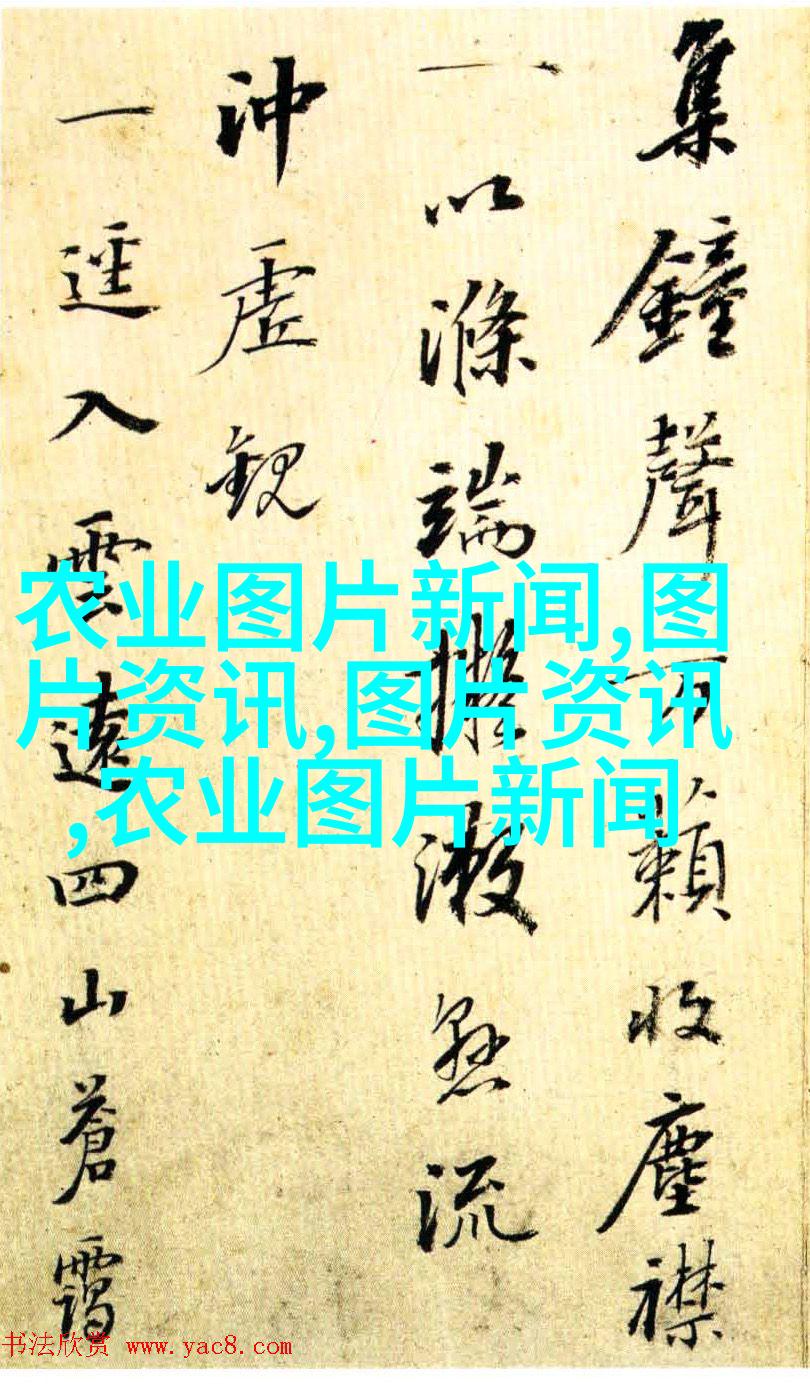 集鐘聲百籟收塵襟
一以滌端擬漱流
沖虛觀
一逕入雲遠四山蒼靄
农业图片新闻,图
片资讯,图片资讯
,农业图片新闻
书法欣赏 www.yac8.com